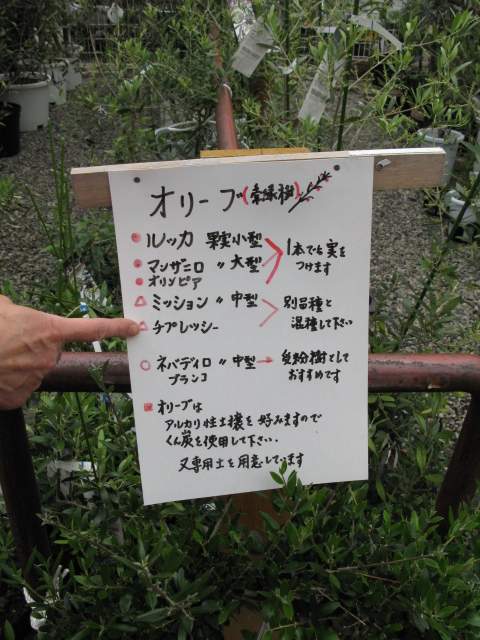 オリーブ(常緑樹)
ルッカ 果実小型
マンザニロ 〃 大型
オリンピア
1本でも実を
つけます
ミッション 〃 中型
チプレッシー
別品種と
混種して下さい
ネバディロ 〃 中型 → 受粉樹として
ブランコ
おすすめです
オリーブは
アルカリ性土壌を好みますので
くん炭を使用して下さい.
又専用土を用意しています